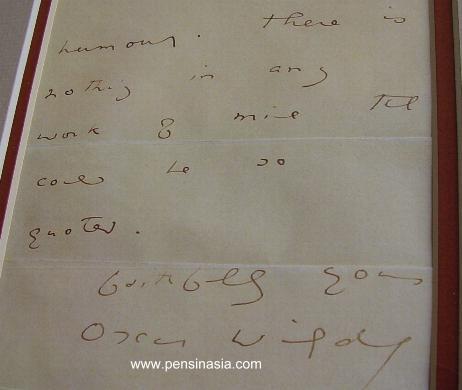 humour. There is
nothing in any
work of mine that
could be so
quoted.
faithfully yours
Oscar Wilde
www.pensinasia.com